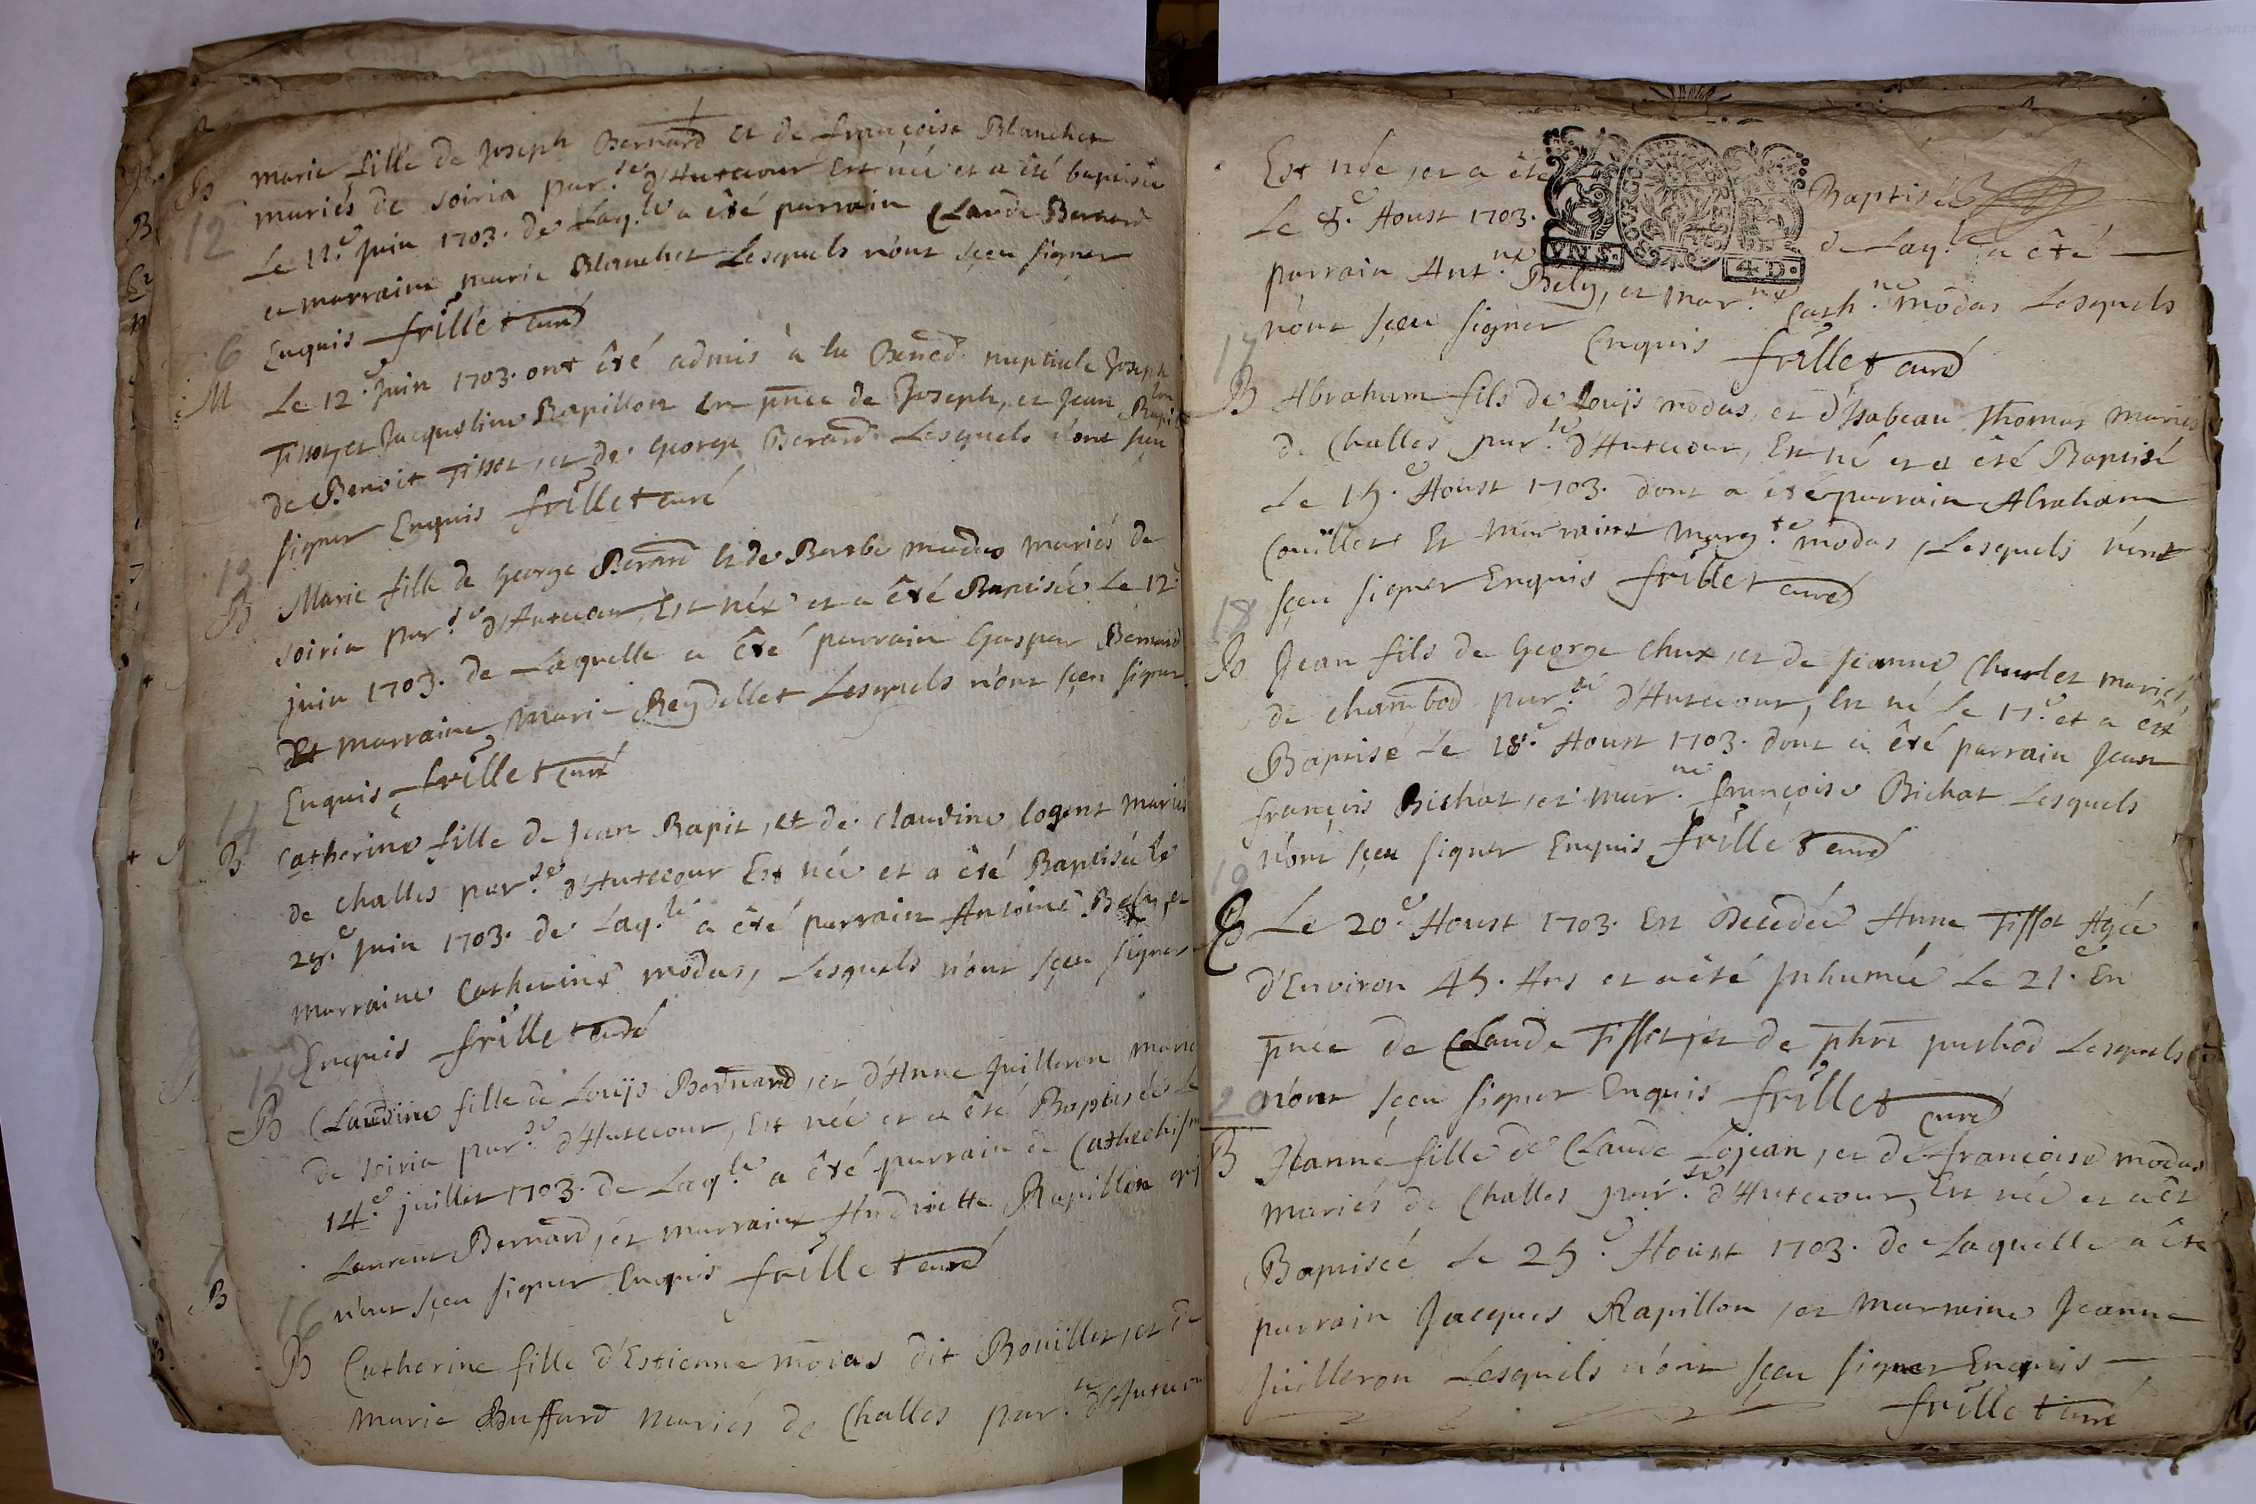 B
12
marie fille de Joseph Bernard et de françoise Blanchet
mariés de soiria par.se d'Hutecour Est née et a été baptisée
Le 11.e Juin 1703. de Laq.le a êté parrain Claude Bernard
et marraine marie Blanchet Lesquels n'ont sçeu signer
Enquis frillet curé
6
M
Le 12.e Juin 1703. ont êté admis à la Bened. nuptiale Joseph
Tissot, et Jacqueline Rapillon En pnce de Joseph, et Jean Rapillon
de Benoit Tissot, et de George Berard. Lesquels n'ont sçeu
signer Enquis frillet curé
13
B
Marie fille de George Berard et de Barbe modas mariés de
soiria par.se d'Hutecour, Est née et a êté Baptisée Le 12.e
juin 1703. de Laquelle a êté parrain Gaspar Bernard
Et marraine Marie Reydellet Lesquels n'ont sçeu signer
Enquis frillet curé
14
B
Catherine fille de Jean Rapit, et de claudine logent mariés
de challes par.se d'Hutecour Est née et a êté Baptisée le
28.e Juin 1703. de Laq.le a êté parrain Antoine Bely, et
marraine Catherine modas, Lesquels n'ont sçeu signer
Enquis frillet curé
15
B
Claudine fille de Louijs Bernard, et d'Anne Juilleron mariés
de soiria par.se d'Hutecour, Est née et a êté Baptisée Le
14.e juillet 1703. de Laq.le a êté parrain de Cathechisme
Laurent Bernard, et marraine Andriette Rapillon qui
n'ont sçeu signer Enquis frillet curé
16
B
Catherine fille d'Estienne modas dit Bouillet, et de
Marie Buffard mariés de Challes par.se d'Hutecour
Est née, et a êté Baptisée
Le 8.e Aoust 1703. de Laq.le a êté
VN.S. 4D.
parrain Ant.ne Bely, et mar.ne Cath.ne modas Lesquels
n'ont sçeu signer Enquis frillet curé
17
B
Abraham fils de Louijs modas, et d'Isabeau Thomas mariés
de Challes par.se d'Hutecour, Est né et a êté Baptisé
Le 15.e Aoust 1703. dont a êté parrain Abraham
Couillet Et marraine marg.te modas, Lesquels n'ont
sçeu signer Enquis frillet curé
18
B
Jean fils de George chux, et de Jeanne Charlet mariés,
de chambod par.se d'Hutecour, Est né le 17.e et a êté
Baptisé Le 18.e Aoust 1703. dont a êté parrain Jean
françois Bichat, et mar.ne françoise Bichat Lesquels
n'ont sçeu signer Enquis frillet curé
19
Le 20.e Aoust 1703. Est Decedée Anne Tissot Agée
d'Environ 45. Ans et a êté Inhumée Le 21.e En
pnce de Claude Tissot, et de phe purbod Lesquels
n'ont sçeu signer Enquis frillet curé
20
B
Jeanne fille de Claude Lojean, et de françoise modas
mariés de Challes par.se d'Hutecour, Est née et a êt
Baptisée Le 25.e Aoust 1703. de Laquelle a êté
parrain Jacques Rapillon, et marraine Jeanne
Juilleron Lesquels n'ont sçeu signer Enquis
frillet curé